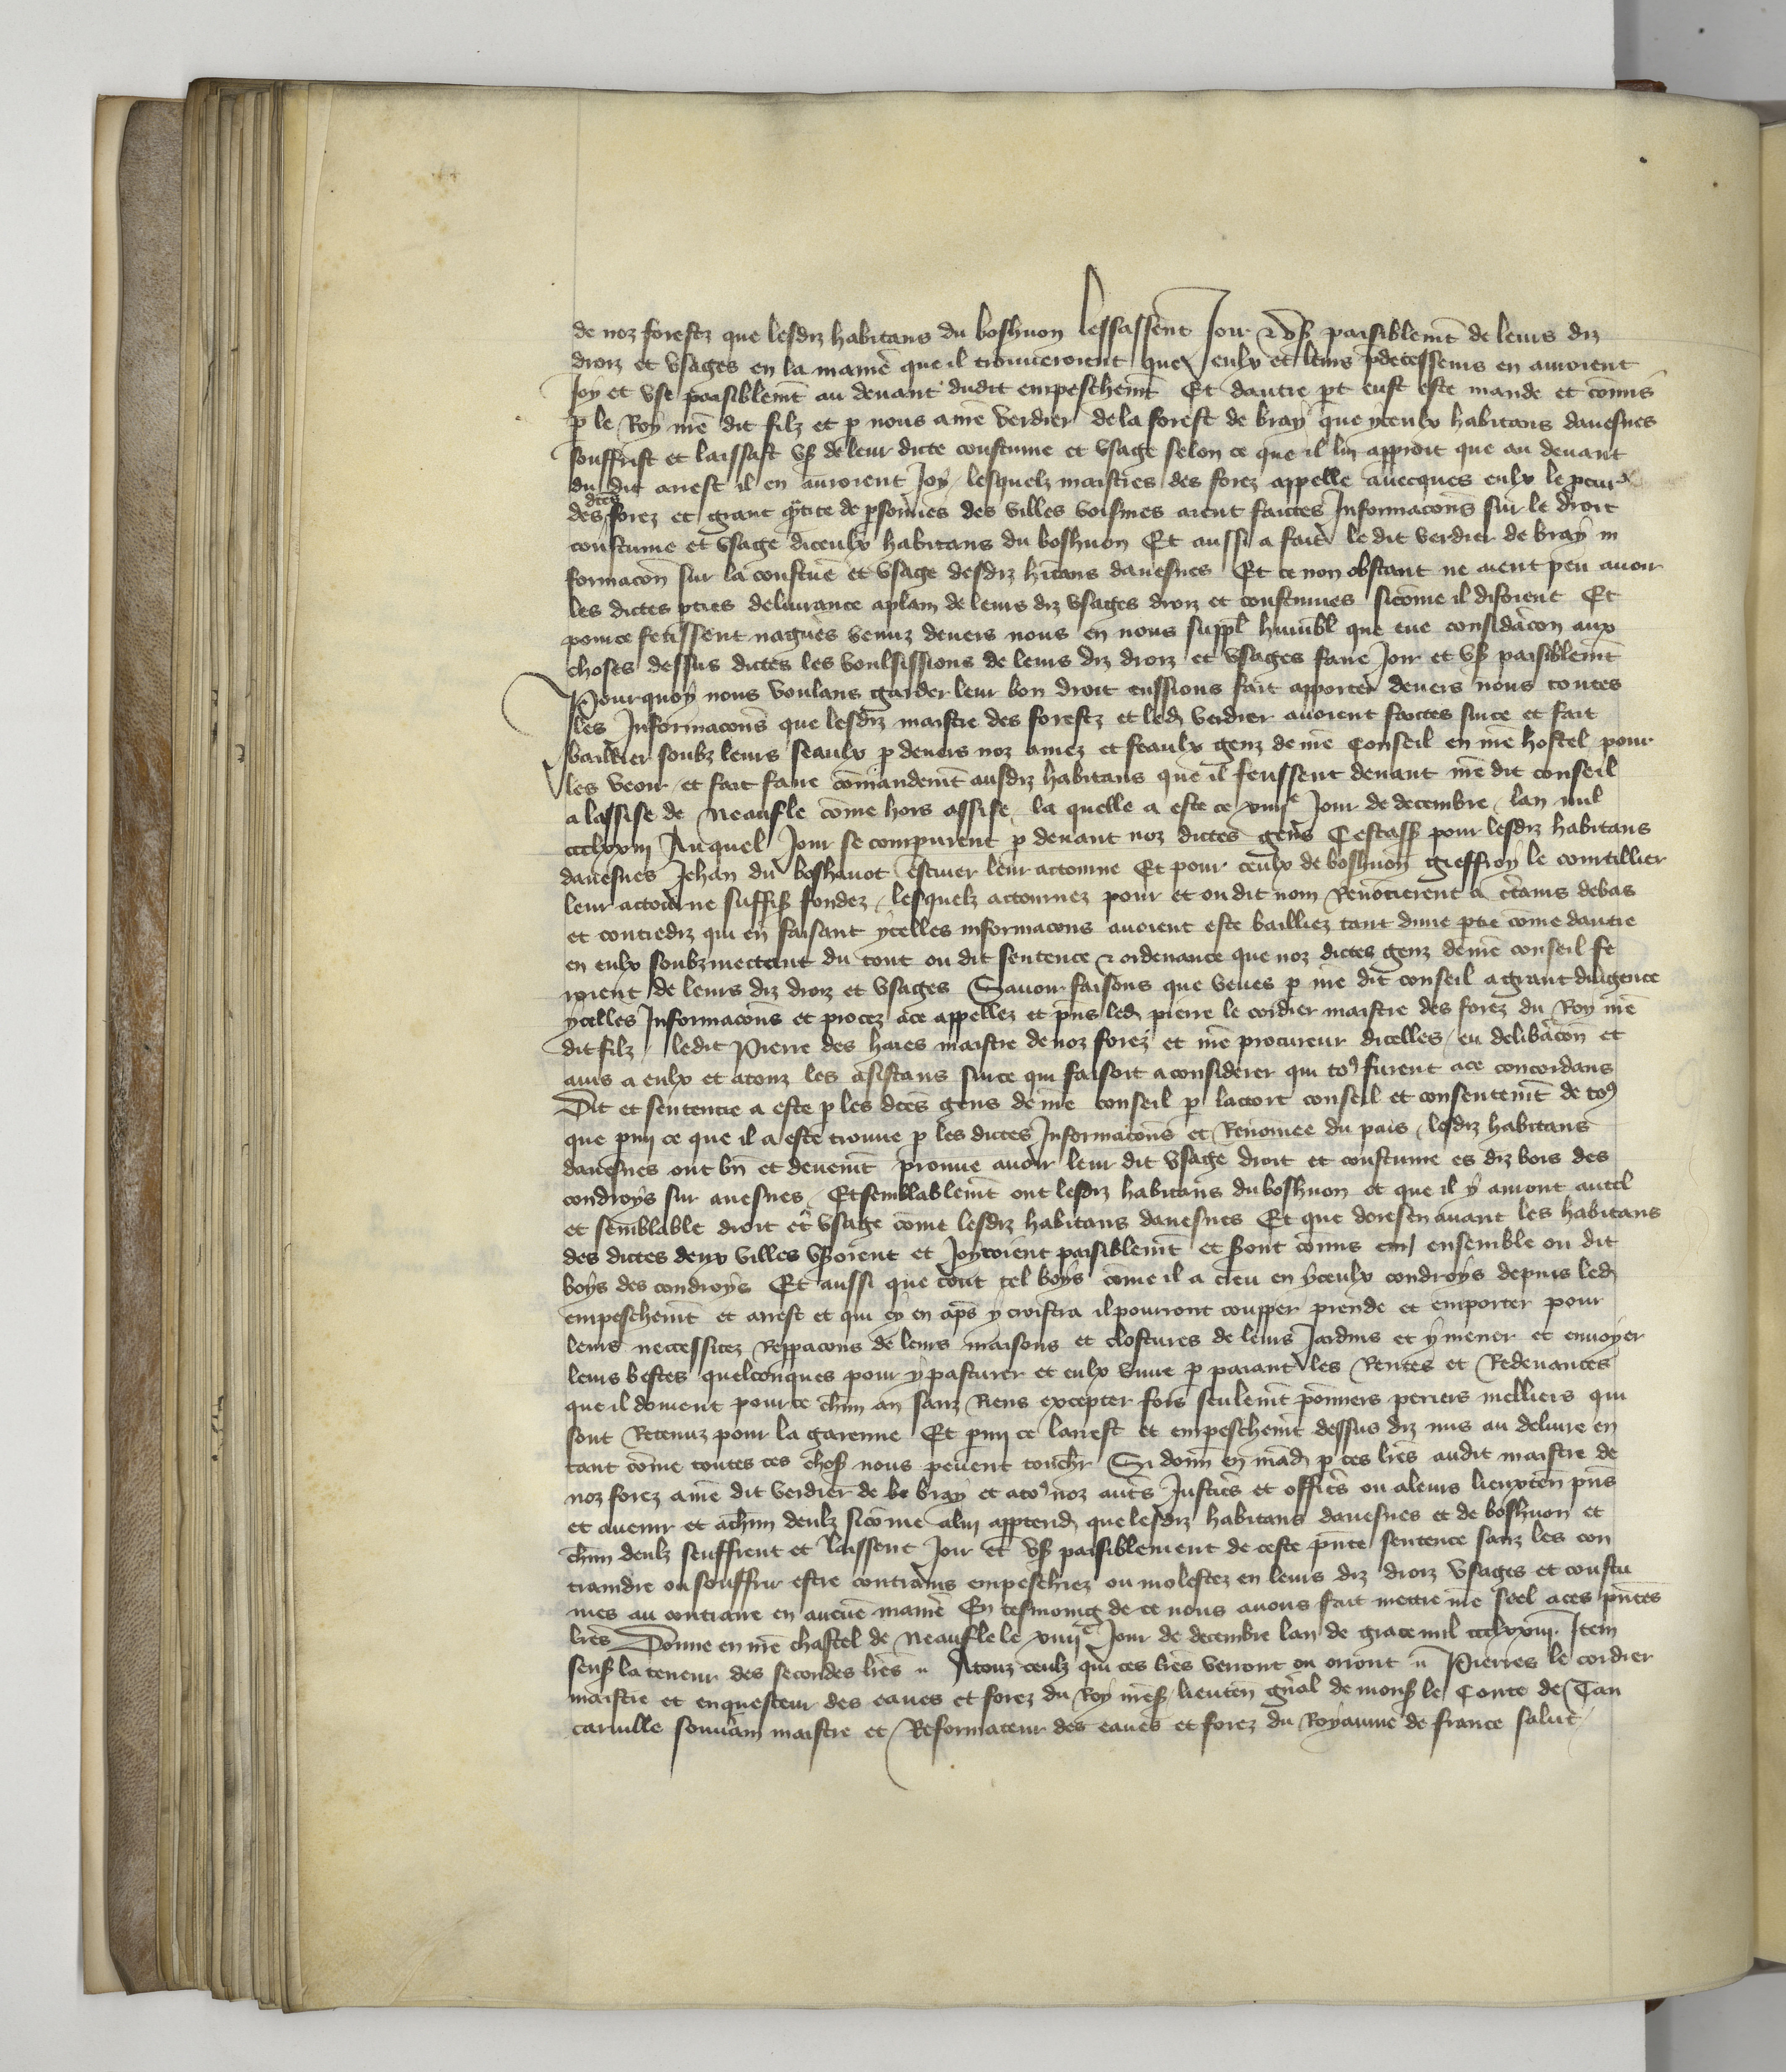 de noz forestz que lesdiz habitans du boshuon lessassent Joir & us̄ paisiblemt̄ de leurs diz
droiz et usages en la manie᷑ que il trouveroient que eulx et leurs p̄decesseurs en avoient
Joy et use paisiblemt̄ au devant dudit empeschemt̄ Et dautre p̄t eust este mande et com̄is
p̄ le Roy nr̄e dit filz et p̄ nous a nr̄e verdier de la forest de bray que yceulx habitans davesnes
souffrist et laissast us̄ de leur dicte coustume et usage selon ce que il lui approit que au devant
du dit arrest il en avoient Joy / lesquelz maistres des forez appelle avecques eulx le pcur̄
des dc̄es forez et grant q̄ntite de p̄sonnes des villes voisines aient faictes Informacōns sur le droit
coustume et usage diceulx habitans du boshuon Et aussi a fait le dit verdier de bray in
formacōn sur la coustūe et usage desdiz hītans davesnes Et ce non obstant ne aient peu avoir
les dictes p̄ties delivrance a plain de leurs diz usages droiz et coustumes sicōme il disoient Et
pource feussent nague᷑s venuz devers nous en nous suppl̄ humbl̄ que eue considac̄on aux
choses dessus dictes les voulsissions de leurs diz droiz et usages faire Joir et us̄ paisiblemt̄
Pourquoy nous voulans garder leur bon droit eussions fait apporter devers nous toutes
les Informacōns que lesdiz maistre des forestz et led̄ verdier avoient faictes sur ce et fait
baillier soubz leurs seaulx p̄ devers noz amez et feaulx genz de nr̄e Conseil en nr̄e hostel pour
les veoir / et fait faire cōmandemt̄ ausdiz habitans que il feussent devant nr̄e dit conseil
a lassise de Neaufle cōme hors assise / la quelle a este ce xiiiie Jour de decembre / lan mil
ccclxxiii Auquel Jour se comparurent p̄ devant noz dictes gens Cestass̄ pour lesdiz habitans
davesnes Jehan du boshavot escuier leur actourne Et pour ceulx de boshuon gieffroy le courtillier
leur actourne suffis̄ fondez / lesquelz actournez pour et ou dit nom Renoncierent a c̄tains debas
et contrediz qui en faisant ycelles informacōns avoient este bailliez tant dune p̄tie cōme dautre
en eulx soubzmectant du tout ou dit sentence & ordenance que noz dictes genz de nr̄e conseil fe
roient de leurs diz droiz et usages Savoir faisons que veues p̄ nr̄e dit conseil a grant diligence
ycelles Informacōns et procez a ce appellez et p̄ns led̄ pierre le cordier maistre des forez du Roy nr̄e
dit filz / ledit Pierre des haies maistre de noz forez et nr̄e procureur dicelles / eu delibāc̄on et
avis a eulx et a touz les asistans sur ce qui faisoit a considerer qui to᷒ furent a ce concordans
Dit et sentencie a este p̄ les dc̄es gens de nr̄e conseil p̄ lactort conseil et consentemt̄ de to᷒
que p̄mi ce que il a este trouve p̄ les dictes Informacōns et Renomee du pais / lesdiz habitans
davesnes ont bn̄ et deuemt̄ prouve avoir leur dit usage droit et coustume es diz bois des
condroys sur avesnes / Et semblablemt̄ ont lesdiz habitans du boshuon et que il y avront autel
et semblable droit et usage cōme lesdiz habitans davesnes Et que doresenavant les habitans
des dictes deux villes useroient et Joyroient paisiblemt̄ et sont com̄s ensemble ou dit
boys des condroys Et aussi que tout tel boys cōme il a creu en yceulx condroys depuis led̄
empeschemt̄ et arrest et qui cy en ap̄s y croistra il pourront coupper prende et emporter pour
leurs neccessitez Rep̄pacōns de leurs maisons et clostures de leurs Jardins et y mener et envoyer
leurs bestes quelconques pour y pasturer et eulx vivre p̄ paiant les Rentes et Redevances
que il doivent pour ce chūn an sanz Riens excepter fors seulemt̄ pōmiers periers melliers qui
sont Retenuz pour la garenne Et p̄mi ce larrest et empeschemt̄ dessus diz mis au delivre en
tant cōme toutes ces choses nous pevent touchr̄ Si donn̄ en mād̄ p̄ ces lr̄es audit maistre de
noz forez a nr̄e dit verdier de bray et a to᷒ noz aut̄s Justic̄s et offic̄s ou a leurs lieuxten̄ p̄ns
et avenir et a chūn deulx sicōme a lui app̄tend̄ que lesdiz habitans davesnes et de boshuon et
chūn deulx seuffrent et laissent Joir et us̄ paisiblement de ceste p̄nte sentence sanz les con
traindre ou souffrir estre contrains empeschiez ou molestez en leurs diz droiz usages et coustu
mes au contraire en aucūe manie᷑ En tesmoing de ce nous avons fait mettre nr̄e seel a ces p̄ntes
lr̄es Donne en nr̄e chastel de Neaufle le xiiiie Jour de decembre lan de grace mil ccclxxiii. Item
sens̄ la teneur des secondes lr̄es // A touz ceulz qui ces lr̄es verront ou orront // Pierres le cordier
maistre et enquesteur des eaues et forez du Roy nr̄es̄ / lieuten̄ gn̄al de mons̄ le Conte de Tan
carville souvāin maistre et Reformateur des eaues et forez du Royaume de france salut /